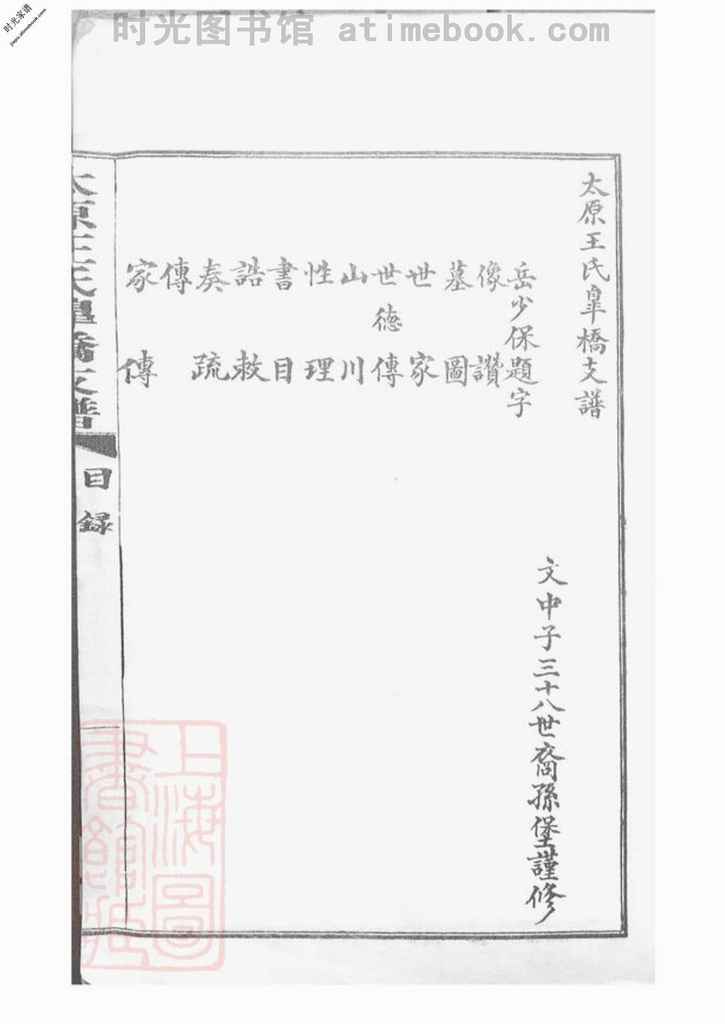 时光图书馆 atimebook.com
时光家谱
太原王氏臯橋支譜
文中子三十八世裔孫堡謹修
岳少保題字
像讚
墓圖
世家
世德傳
山川
性理
書目
誥敕
奏疏
傳
家傳
太原王氏臯橋支譜
目錄
上海圖書館藏